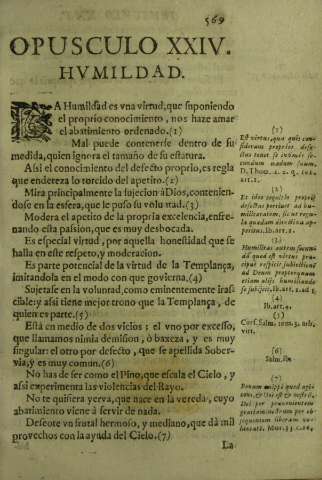 569
OPUSCULO XXIV.
HVMILDAD.
LA Humildad es vna virtud, que suponiendo
el proprio conocimiento, nos haze amar
el abatimiento ordenado. (1)
Mal puede contenerse dentro de su
medida, quien ignora el tamaño de su estatura.
Assi el conocimiento del defecto proprio, es regla
que endereza lo torcido del apetito. (2)
Mira principalmente la sujecion à Dios, contenien-
dose en la esfera, que le puso su voluntad. (3)
Modera el apetito de la propria excelencia, enfre-
nando esta passion, que es muy desbocada.
Es especial virtud, por aquella honestidad que se
halla en este respeto, y moderacion.
Es parte potencial de la virtud de la Templança,
imitandola en el modo con que govierna. (4)
Sujetase en la voluntad, como eminentemente irasci-
cible: y assi tiene mejor trono que la Templança, de
quien es parte. (5)
Està en medio de dos vicios; el vno por excesso,
que llamamos nimia demission, ò baxeza, y es muy
singular: el otro por defecto, que se apellida Sober-
via, y es muy comun. (6)
No has de ser como el Pino, que escala el Cielo, y
assi experimenta las violencias del Rayo.
No te quisiera yerva, que nace en la vereda, cuyo
abatimiento viene à servir de nada.
Deseote vn frutal hermoso, y mediano, que dà mil
provechos con la ayuda del Cielo. (7)
La
(1)
Est virtus, qua quis con-
siderans proprium defe-
ctum tenet se in
secundum modum suum,
D. Thom. 2. 2. q. 161.
art. 1.
(2)
Et ideo cognitio proprij
defectus pertinet ad hu-
militatem, sicut regu-
la quædam directiva ap-
petitus. Ib. art. 2.
(3)
Humilitas
ad Deum propter quem
etiam alijs humiliando
se subjicit, Ib. art. 1. ad 5.
(4)
Ib. art. 4.
(5)
Curs. Salm. tom. 3. arb.
virt.
(6)
Salm. ibi